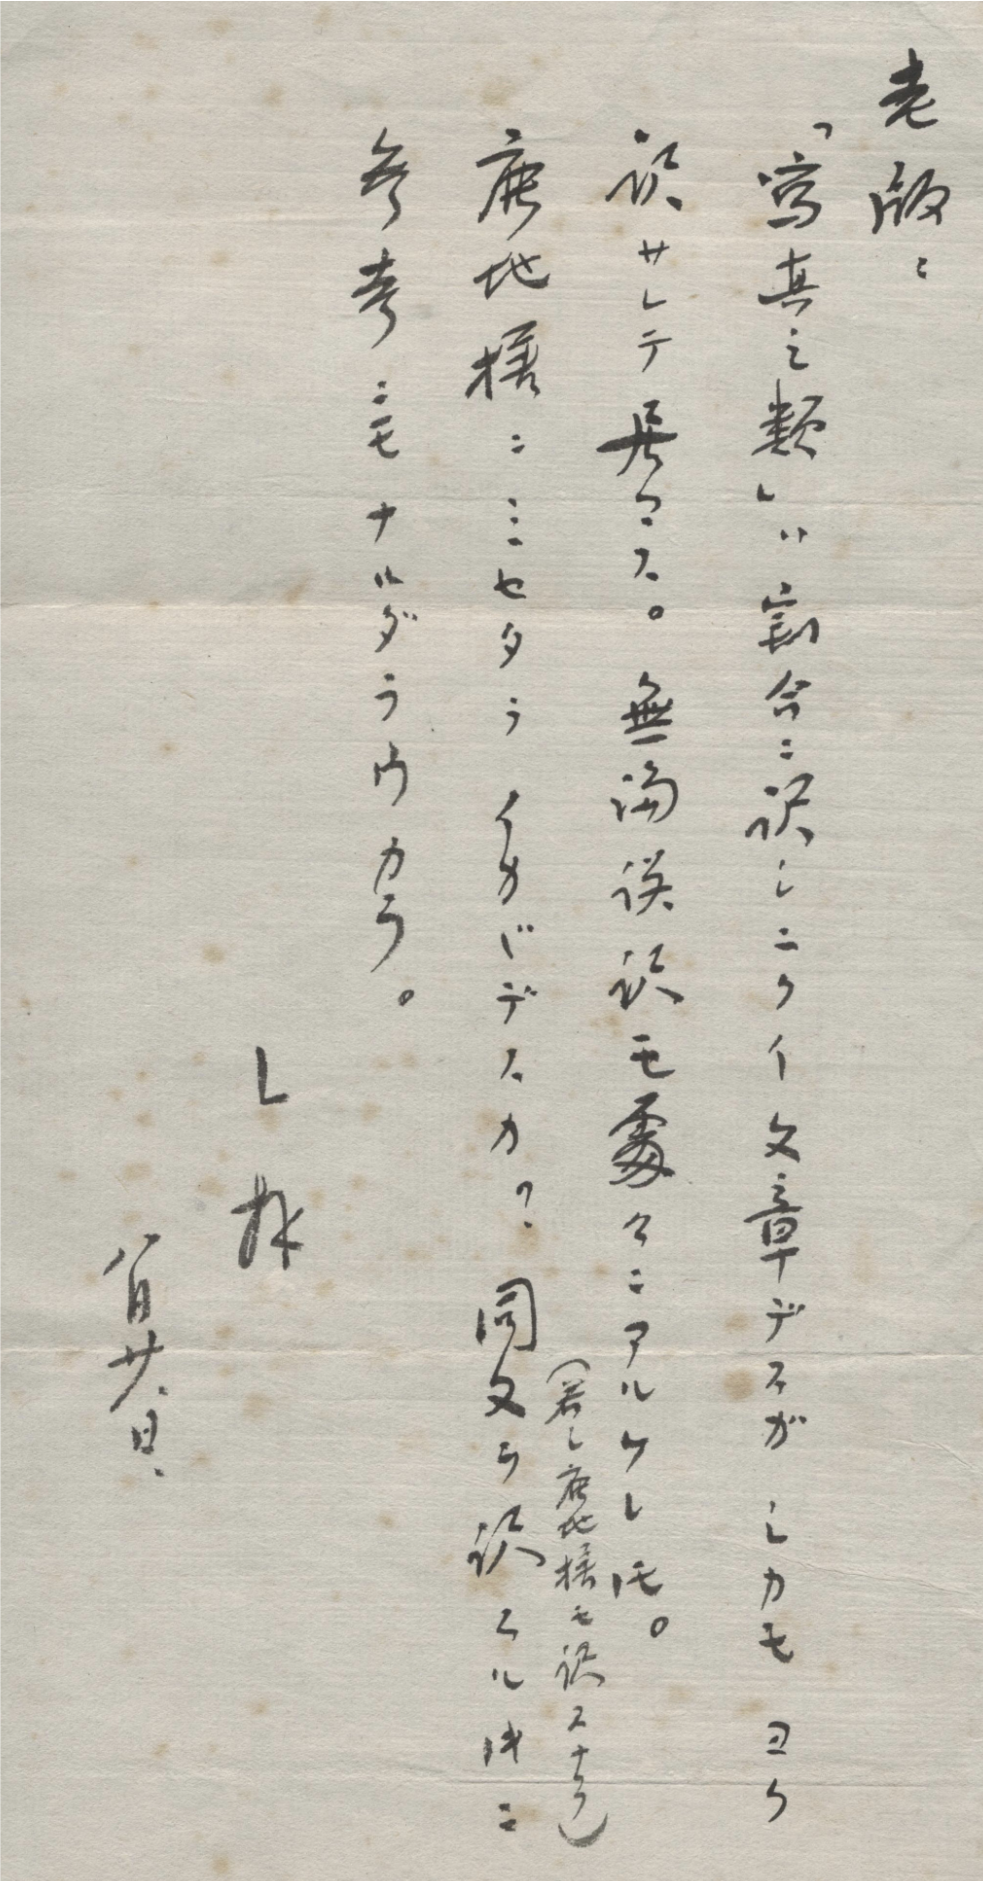 老版：
「寫真之類」ハ割合ニ訳シニクイ文章デスガ シカモ ヨク
訳サレテ居マス。無論誤訳モ處々ニアルケレ𪜈。
（若シ鹿地様モ訳スナラ）
鹿地様ニミセタラ イカガデスカ？ 同文ヲ訳スルトキニ
参考ニモナルダラウカラ。
L 拝
八月廿日